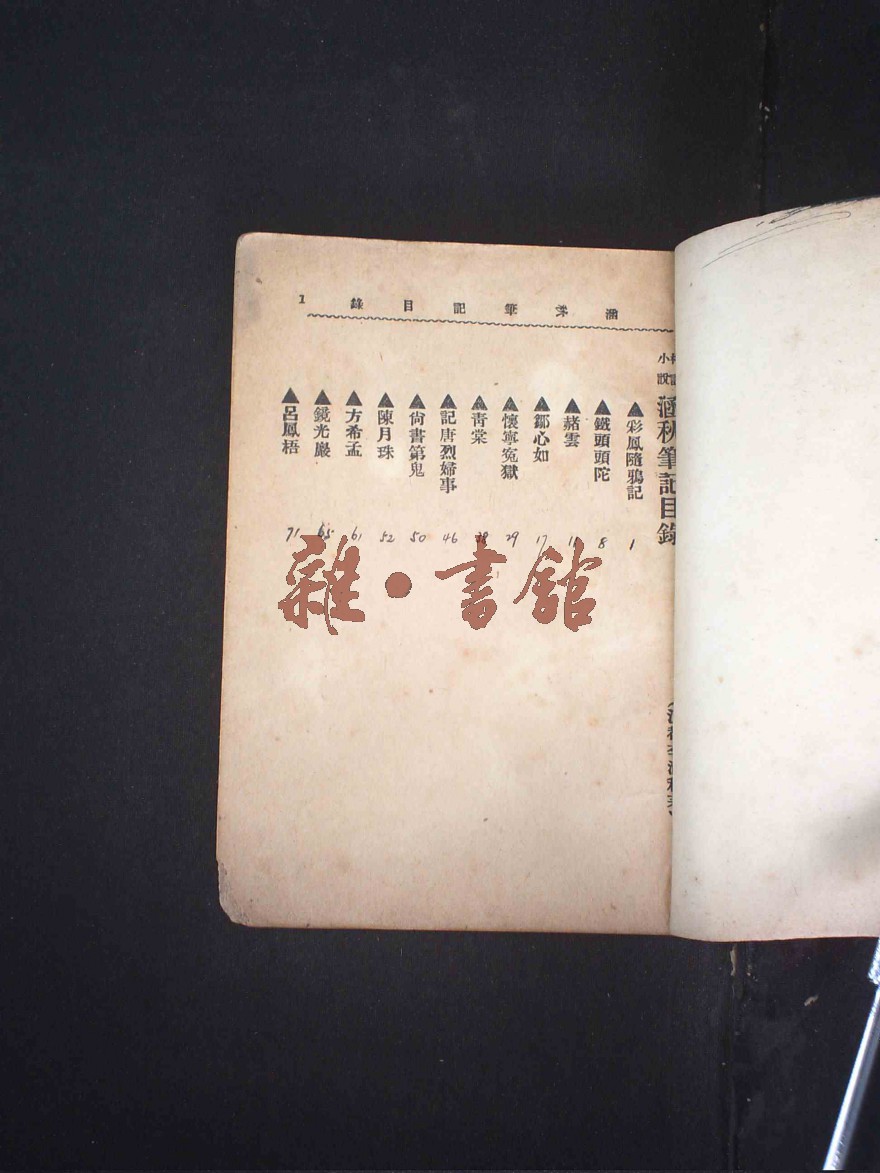 涵秋筆記目錄 1
小說 涵秋筆記目錄
▲彩鳳隨鴉記 1
▲鐵頭頭陀 8
▲赭雲 11
▲鄒心如 17
▲懷寧冤獄 29
▲青棠 39
▲記唐烈婦事 46
▲尙書第鬼 50
▲陳月珠 52
▲方希孟 61
▲鏡光巖 65
▲呂鳳梧 71
雜·書館